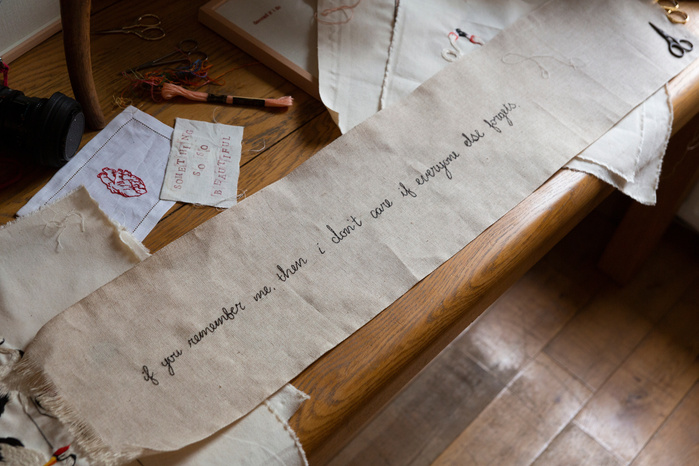 if you remember me, then i don't care if everyone else forgets.
SOMETHING
SO SO
BEAUTIFUL